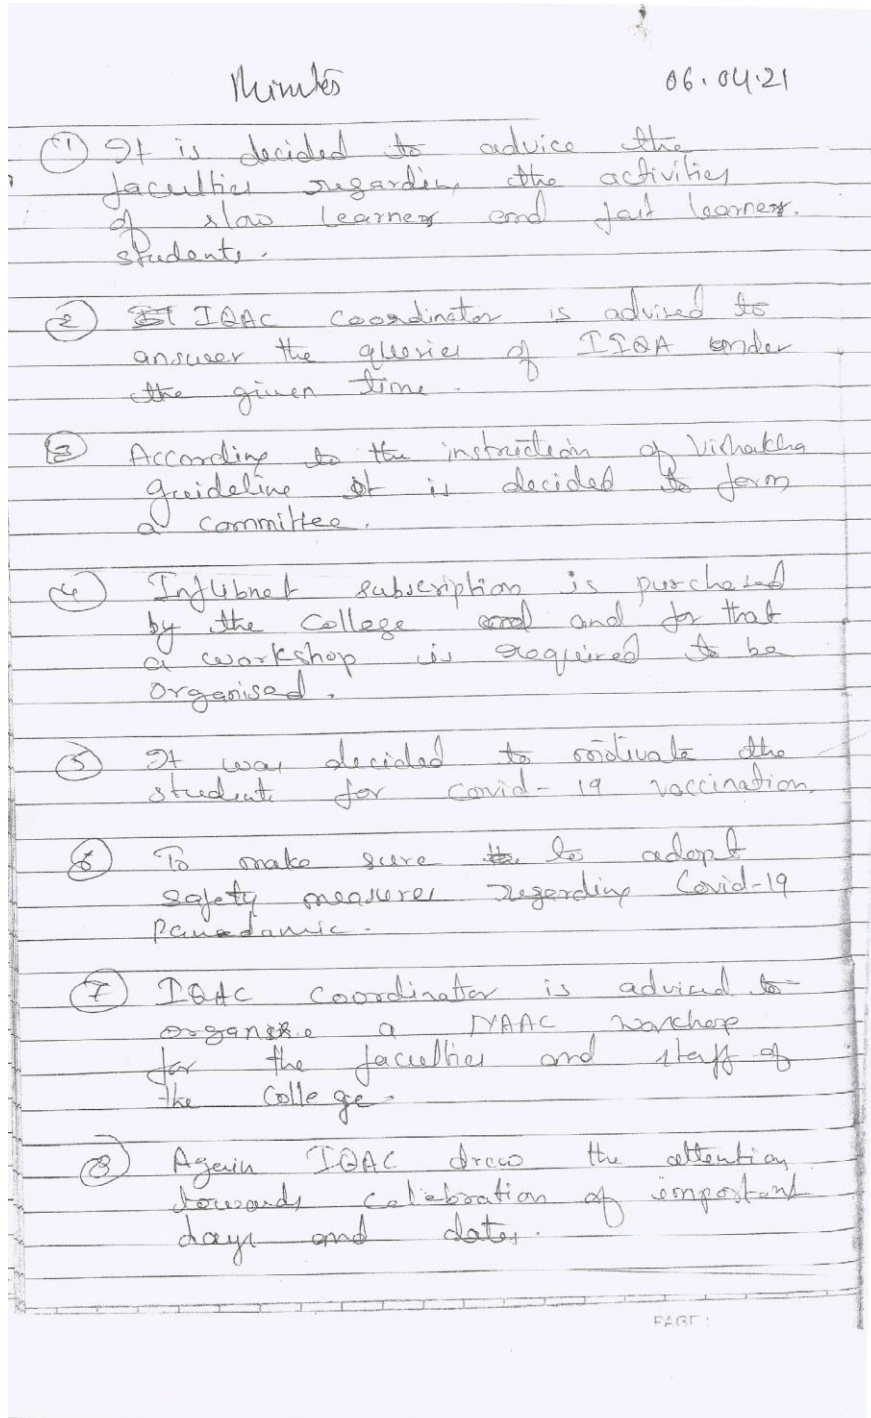 Minutes 06.04.21
(1) It is decided to advice the
faculties regarding the activities
of slow learners and fast learners.
students.
(2) IQAC coordinator is advised to
answer the queries of IIQA under
the given time.
(3) According to the instruction of Vishakha
guideline it is decided to form
a committee.
(4) Inflibnet subscription is purchased
by the College and for that
a workshop is required to be
organised.
(5) It was decided to motivate the
students for Covid-19 vaccination.
(6) To make sure to adopt
safety measures regarding Covid-19
Panedamic.
(7) IQAC Coordinator is advised to
organise a NAAC
for the faculties and staff of
the College.
(8) Again IQAC drew the attention
towards Celebration of important
days and dates.
PAGE: